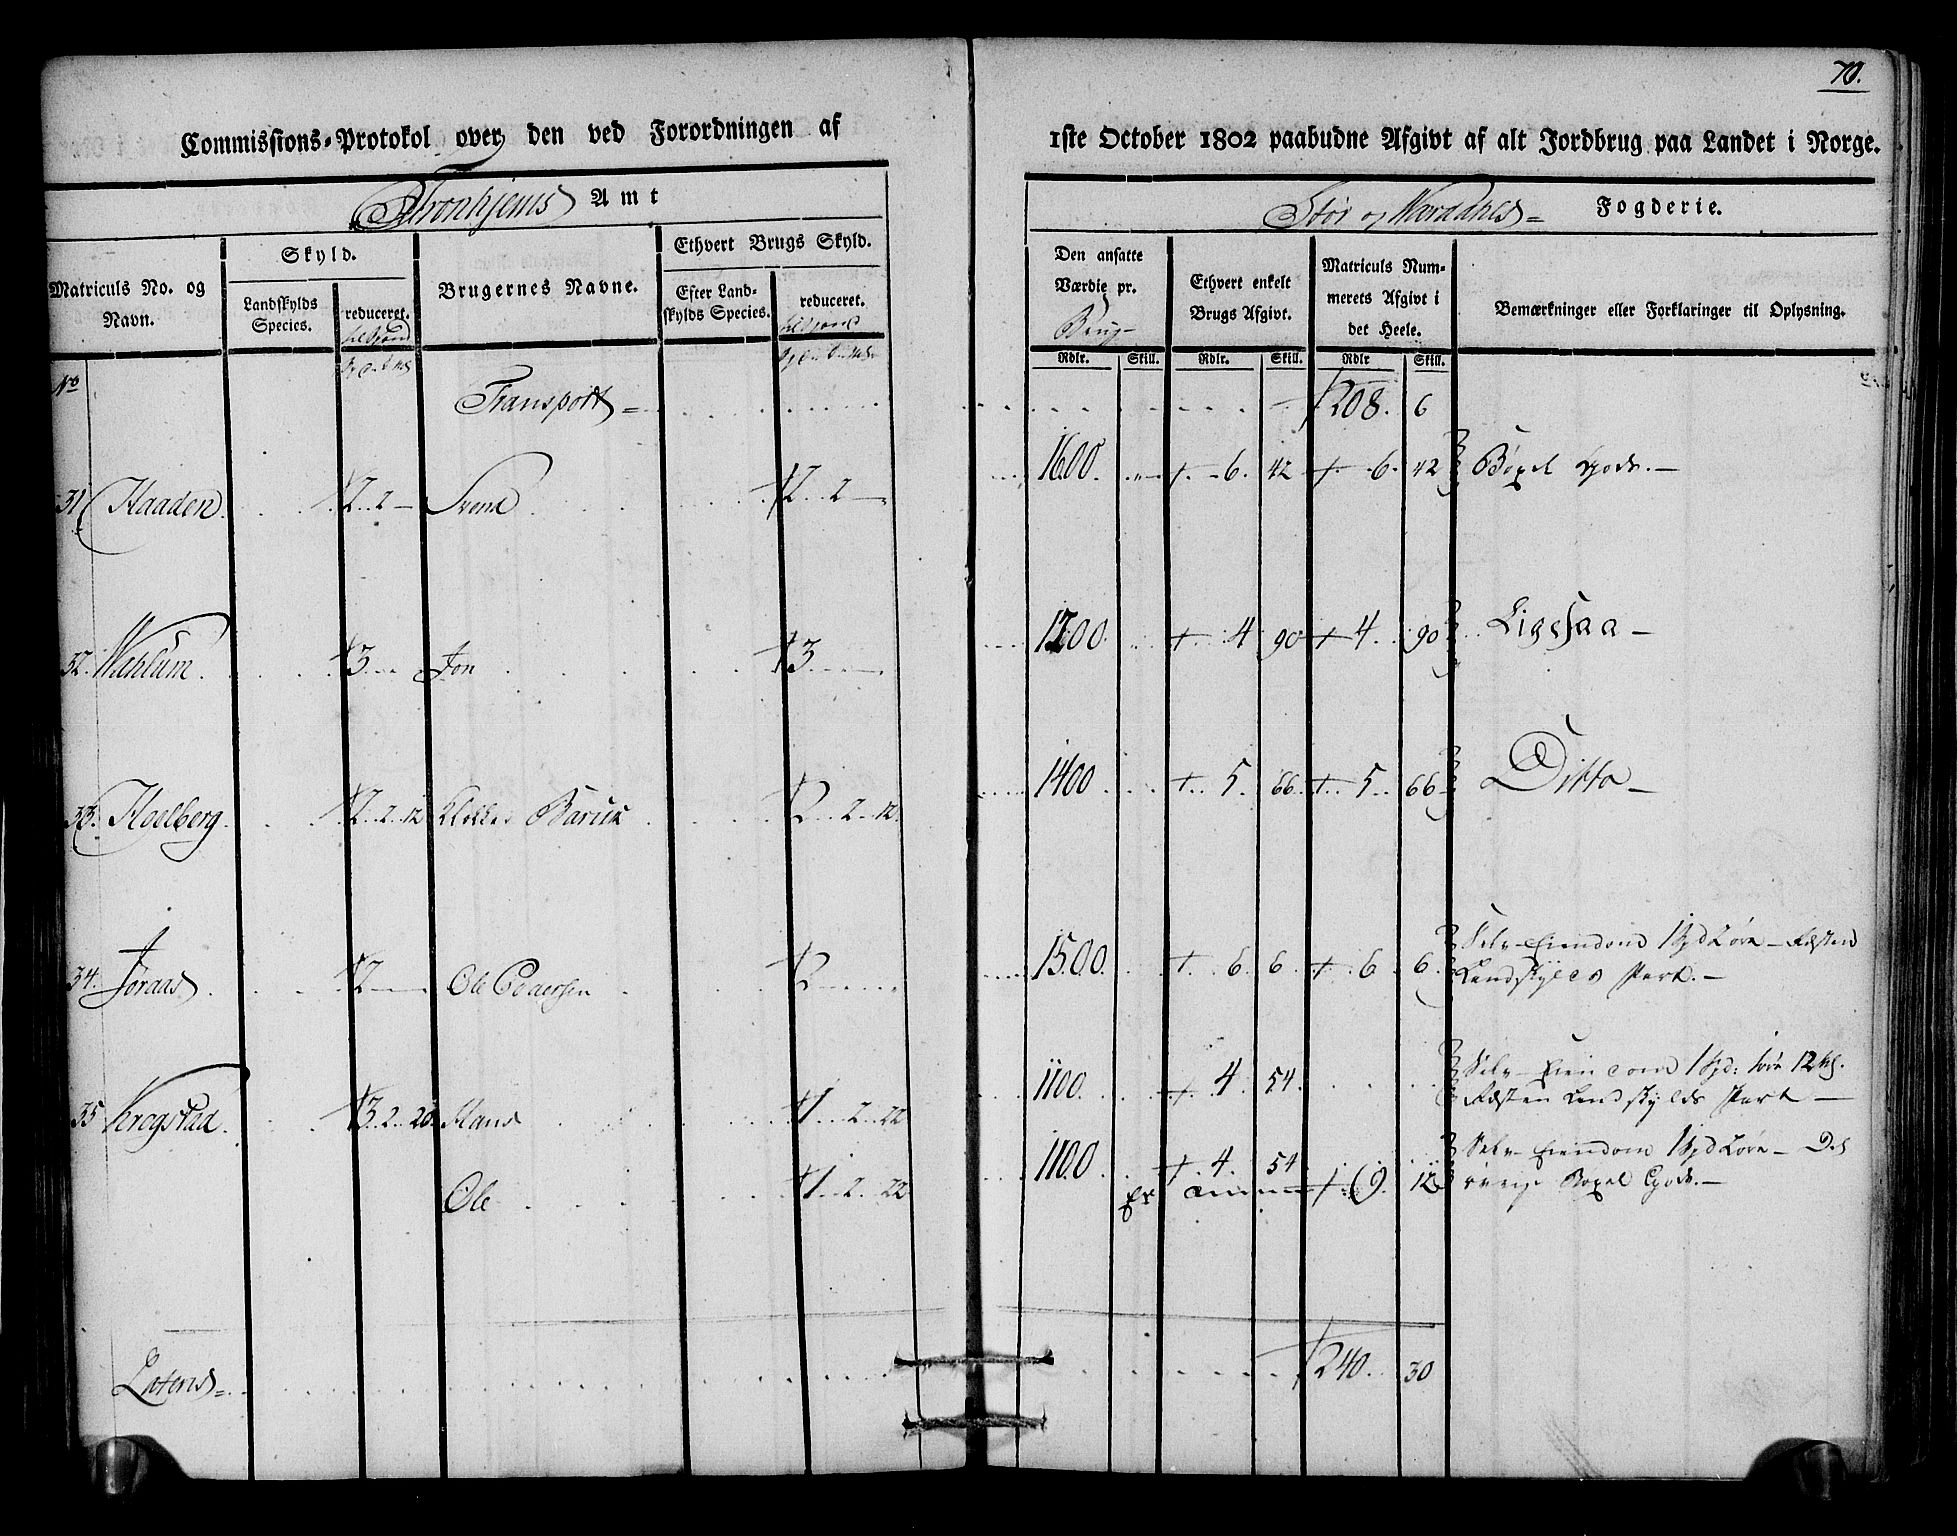 70.
Commissions-Protokol over den ved Forordningen af
1ste October 1802 paabudne Afgivt af alt Jordbrug paa Landet i Norge.
Tronhjems Amt
Stør og Værdahls Fogderie.
Matriculs No. og Navn.
Skyld.
Landskylds Species.
reduceret.
Brugernes Navne.
Ethvert Brugs Skyld.
Efter Landskylds Species.
reduceret.
Den ansatte Værdie pr.
Brug
Ethvert enkelt Brugs Afgivt.
Matriculs Nummerets Afgivt i det Heele.
Bemærkninger eller Forklaringer til Oplysning.
Rdlr. Skill. Rdlr. Skill. Rdlr Skill.
No
Transport 208. 6
31 Haaden 2 .. 2 — Svend 2 .. 2 — 1600. 6. 42 6. 42 Bøxel Gods. —
32. 3 — Jon 3 — 1200 4 90 4 90 Ligesaa —
33. Hoelberg. 2 .. 2 .. 12 2 .. 2 .. 12. 1400 5. 66 5 66 Ditto —
34. 2 — Ole Pedersen 2 — 1500. 6. 6. 6 6. Selv-Eiendom
Landskyld Part. —
35 Krogstad. 3 .. 2 .. 20 Hans 1 .. 2 .. 22 1100. 4. 54. Selv-Eiendom
Landskylds Part —
Ole 1 .. 2 .. 22 1100. 4. 54 9. 12 Selv-Eiendom
Bøxel Gods. —
Lateris 240. 30